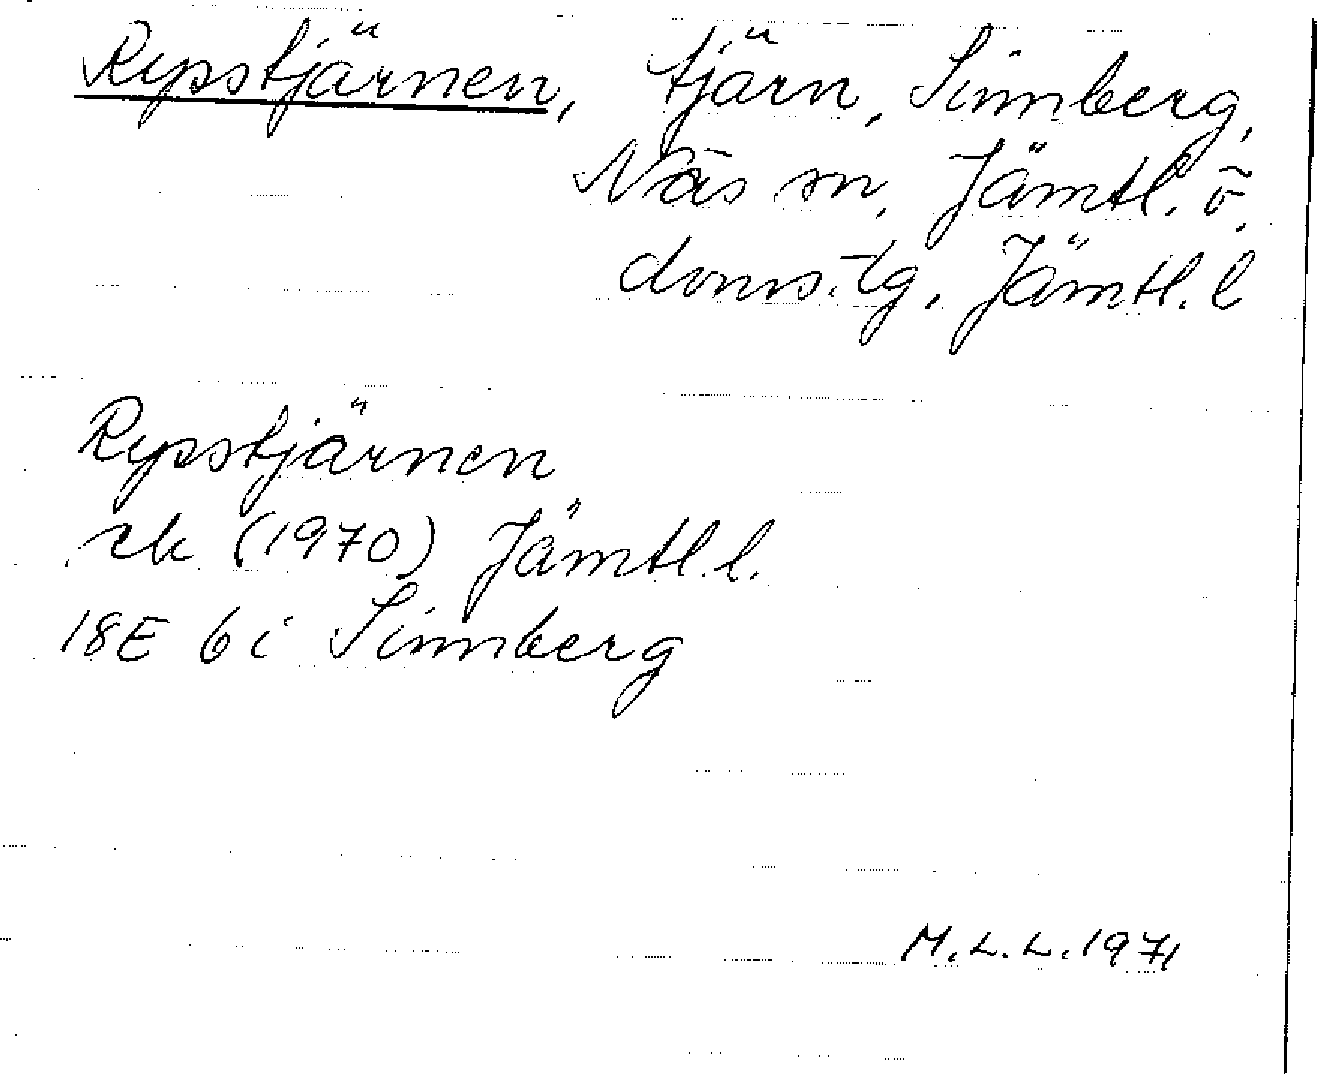 Rypstjärnen, tjärn, Sinnberg,
Näs sn, Jämtl. ö.
doms.tg. Jämtl. l
Rypstjärnen
rek (1970) Jämtl.l.
18E 6i Sinnberg
M.L.L. 1971